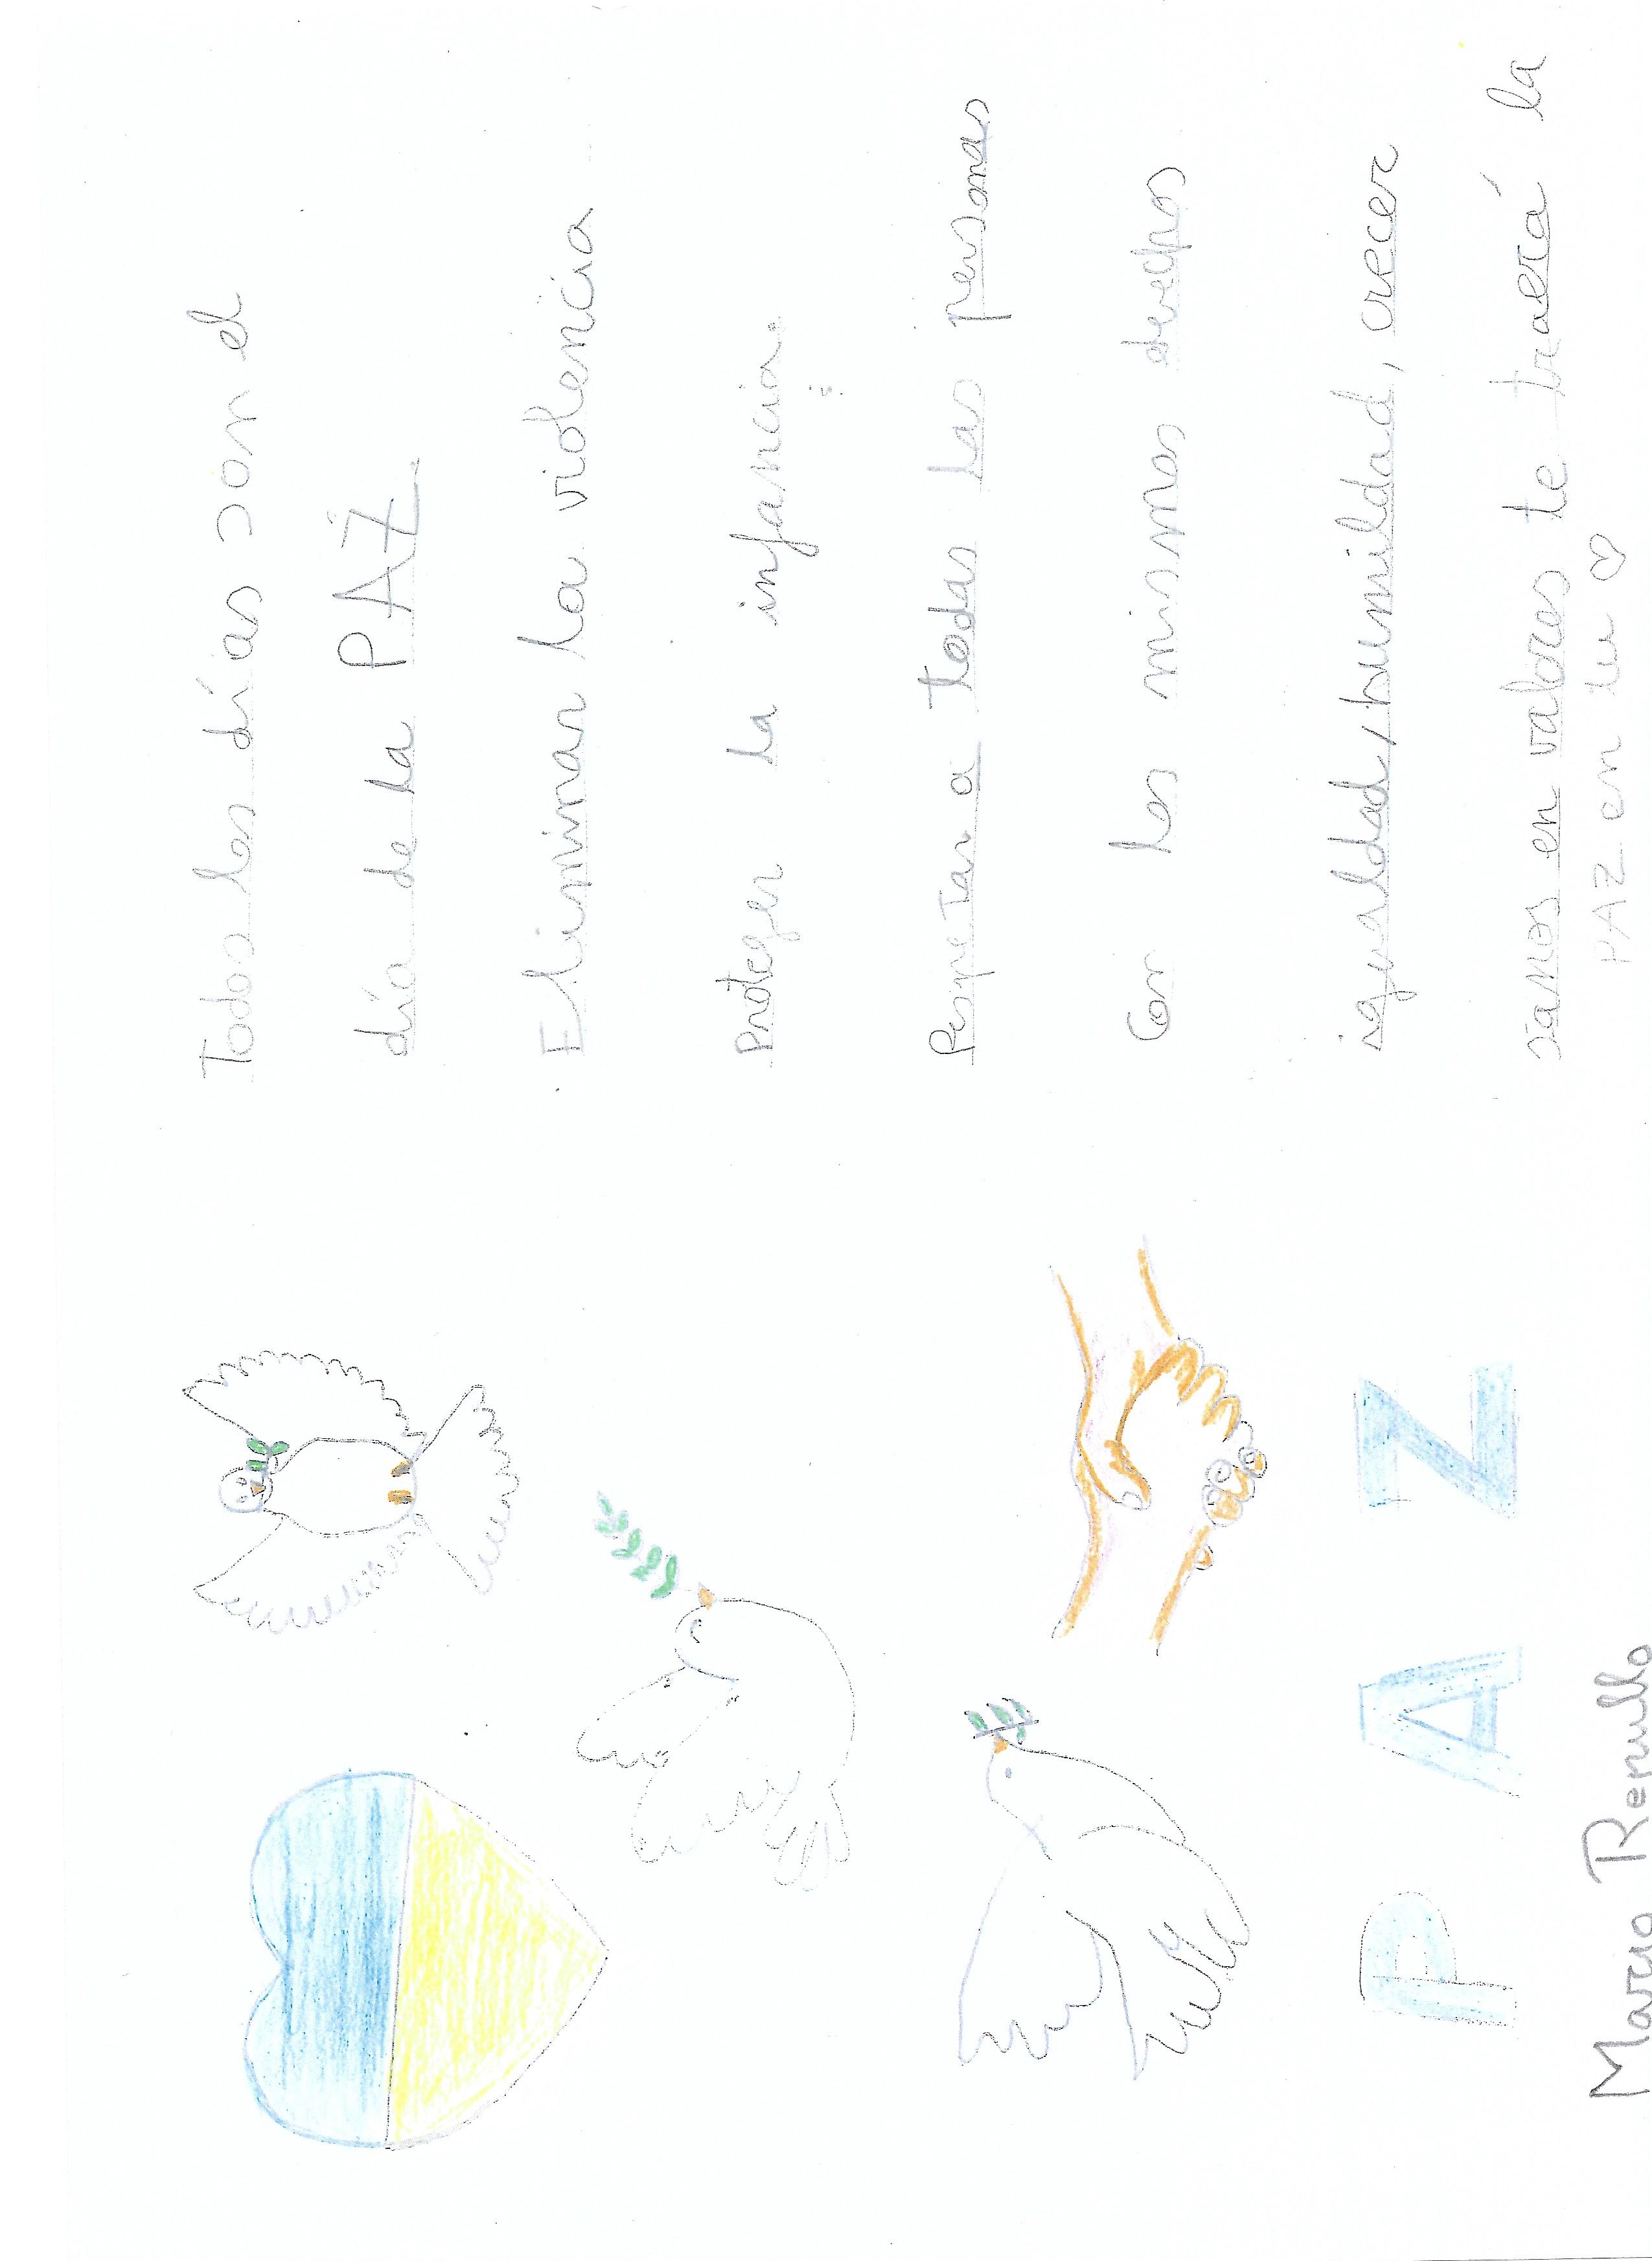 Todos los días son el
día de la PAZ.
Eliminar la violencia
Proteger la infancia.
Respetar a todas las personas
Con los mismos derechos
igualdad, humildad, crecer
sanos en valores te traerá la
PAZ en tu ♡
PAZ
Mario Repullo